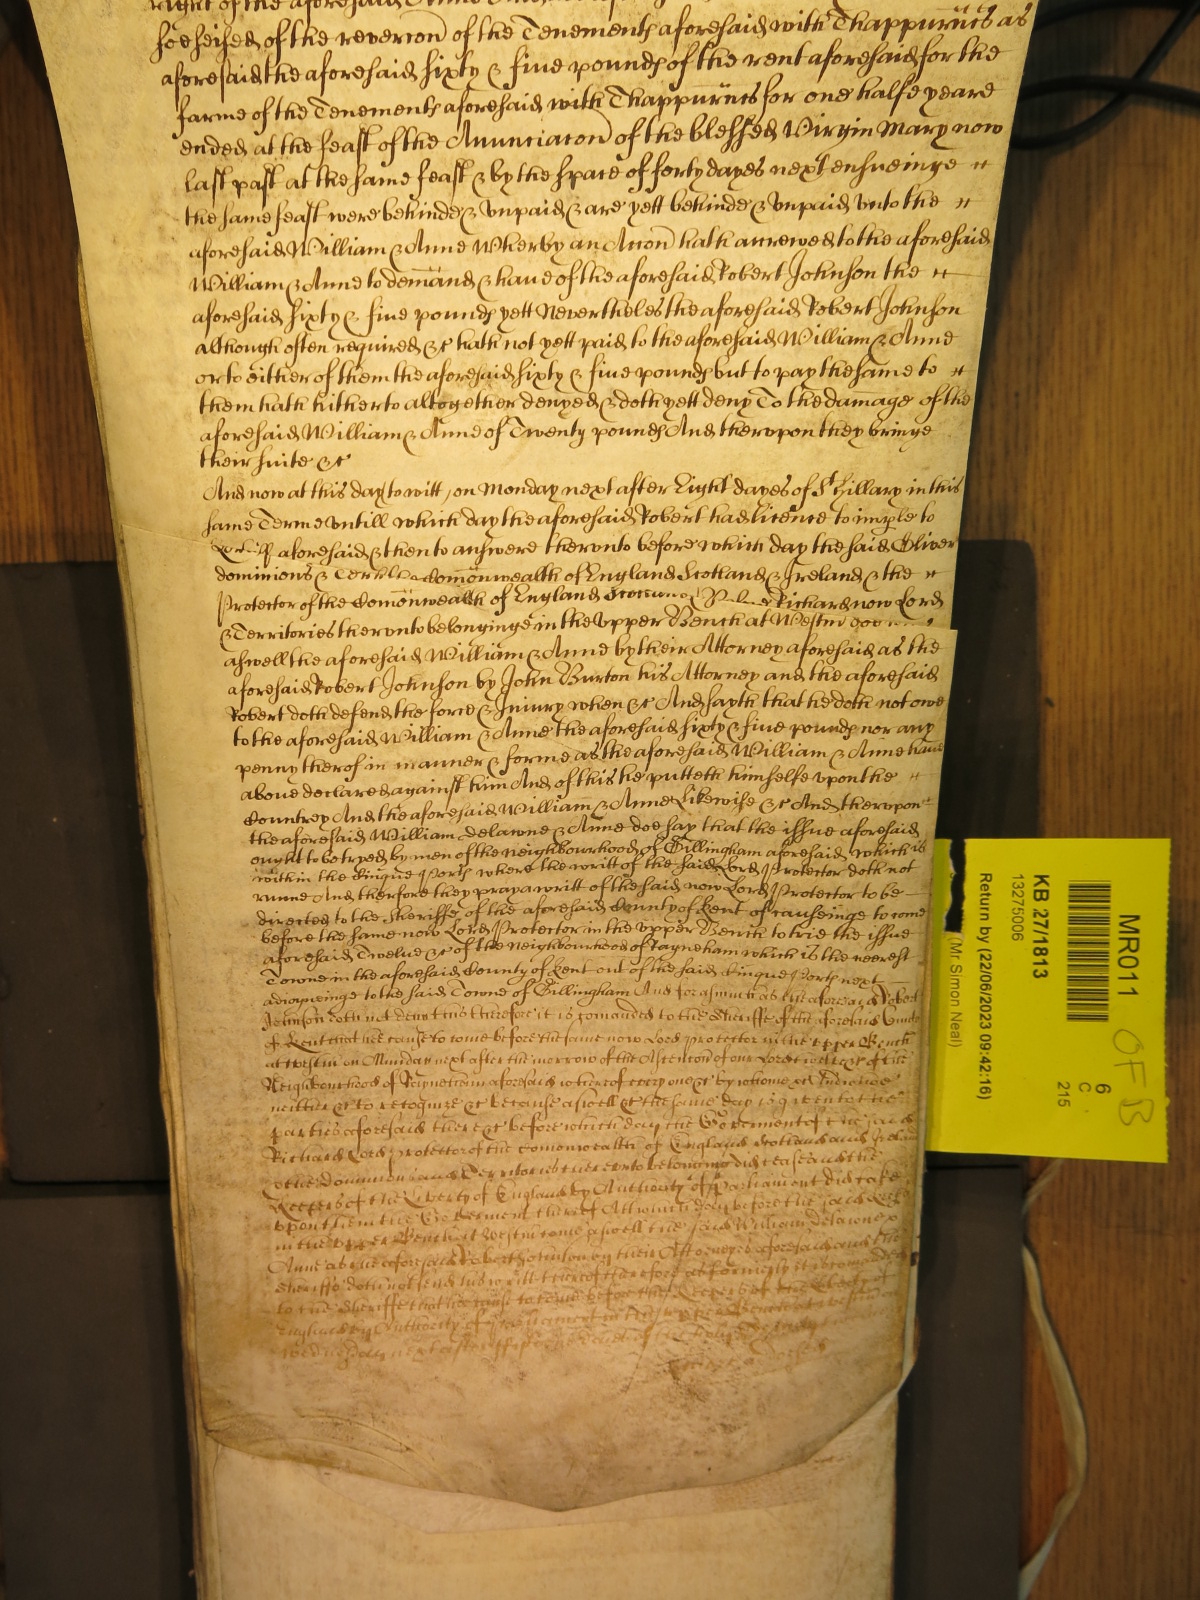 right of the aforesaid Anne
soe seised of the revercon of the Tenements aforesaid with Thappurtnces as
aforesaid the aforesaid sixty & five pounds of the rent aforesaid for the
farme of the Tenements aforesaid with Thappurtnces for one halfe yeare
ended at the feast of the Annunciacon of the blessed Virgin Mary now
last past at the same feast & by the space of forty dayes next ensueinge
the same feast were behinde & vnpaid & are yett behinde & vnpaid vnto the
aforesaid William & Anne Wherby an Accon hath accrewed to the aforesaid
William & Anne to demand & have of the aforesaid Robert Johnson the
aforesaid sixty & five pounds yett Nevertheles the aforesaid Robert Johnson
although often required &c hath not yett paid to the aforesaid William & Anne
or to either of them the aforesaid sixty & five pounds but to pay the same to
them hath hitherto altogether denyed & doth yett deny To the damage of the
aforesaid William & Anne of Twenty pounds And thervpon they bringe
their suite &c
And now at this day to witt, on Monday next after Eight dayes of St Hillary in this
same Terme vntill which day the aforesaid Robert had licence to imple to
aforesaid & then to answere thervnto before which day the said Oliver
dominions & Comonwealth of England Scotland & Ireland & the
Protector of the Comonwealth of England Richard now Lord
& Territories thervnto belonginge in the Vpper Bench at Westm
aswell the aforesaid William & Anne by their Attorney aforesaid as the
aforesaid Robert Johnson by John Burton his Attorney and the aforesaid
Robert doth defend the force & Iniury when &c And sayth that he doth not owe
to the aforesaid William & Anne the aforesaid sixty & five pounds nor any
penny therof in manner & forme as the aforesaid William & Anne have
above declared against him And of this he putteth himselfe vpon the
Countrey And the aforesaid William & Anne Likewise &c And thervpon
the aforesaid William Delawne & Anne doe say that the issue aforesaid
ought to be tryed by men of the neighbourhood of Gillingham aforesaid which is
within the Cinque Ports where the writt of the said Lord Protector doth not
runne And therfore they pray a writt of the said now Lord Protector to be
directed to the Sheriffe of the aforesaid County of Kent of causeinge to come
before the same now Lord Protector in the Vpper Bench to trie the issue
aforesaid Twelve &c of the neighbourhood of Rayneham which is the neerest
Towne in the aforesaid County of Kent out of the said Cinque Ports next
adioyneinge to the said Towne of Gillingham And forasmuch as the aforesaid Robert
Johnson doth not deny this therefore it is comanded to the Sheriffe of the aforesaid County
of Kent that hee cause to come before the same now Lord Protector in the Vpper Bench
at Westm on Munday next after the morrow of the Ascencon of our Lord twelve &c of the
Neighbourhood of Raynetham aforesaid wherof every one &c by whome &c And whoe
neither &c to recognize &c because aswell &c the same day is given to the
parties aforesaid there &c before which day the Government of the said
Richard Lord protector of the comonwealth of England Scotland and Ireland
& the dominions and Territories thereunto belonging did cease and the
Keepers of the liberty of England by Authority of Parliament did take
vpon them the Government thereof At which day before the said Keepers
in the vpper Bench at Westm come aswell the said William Delawne &
Anne as the aforesaid Robert Johnson by their Attorneyes aforesaid and the
Sheriffe doth not send his writt thereof therefore as formerly it is comanded
to the Sheriffe that hee cause to come before the Keepers of the liberty of
England by Authority of Parliament in the vpper Bench at Westm on
Wednesday next after
MR011
KB 27/1813
13275006
6
C
215
Return by (22/06/2023 09:42:16)
(Mr Simon Neal)
OF B